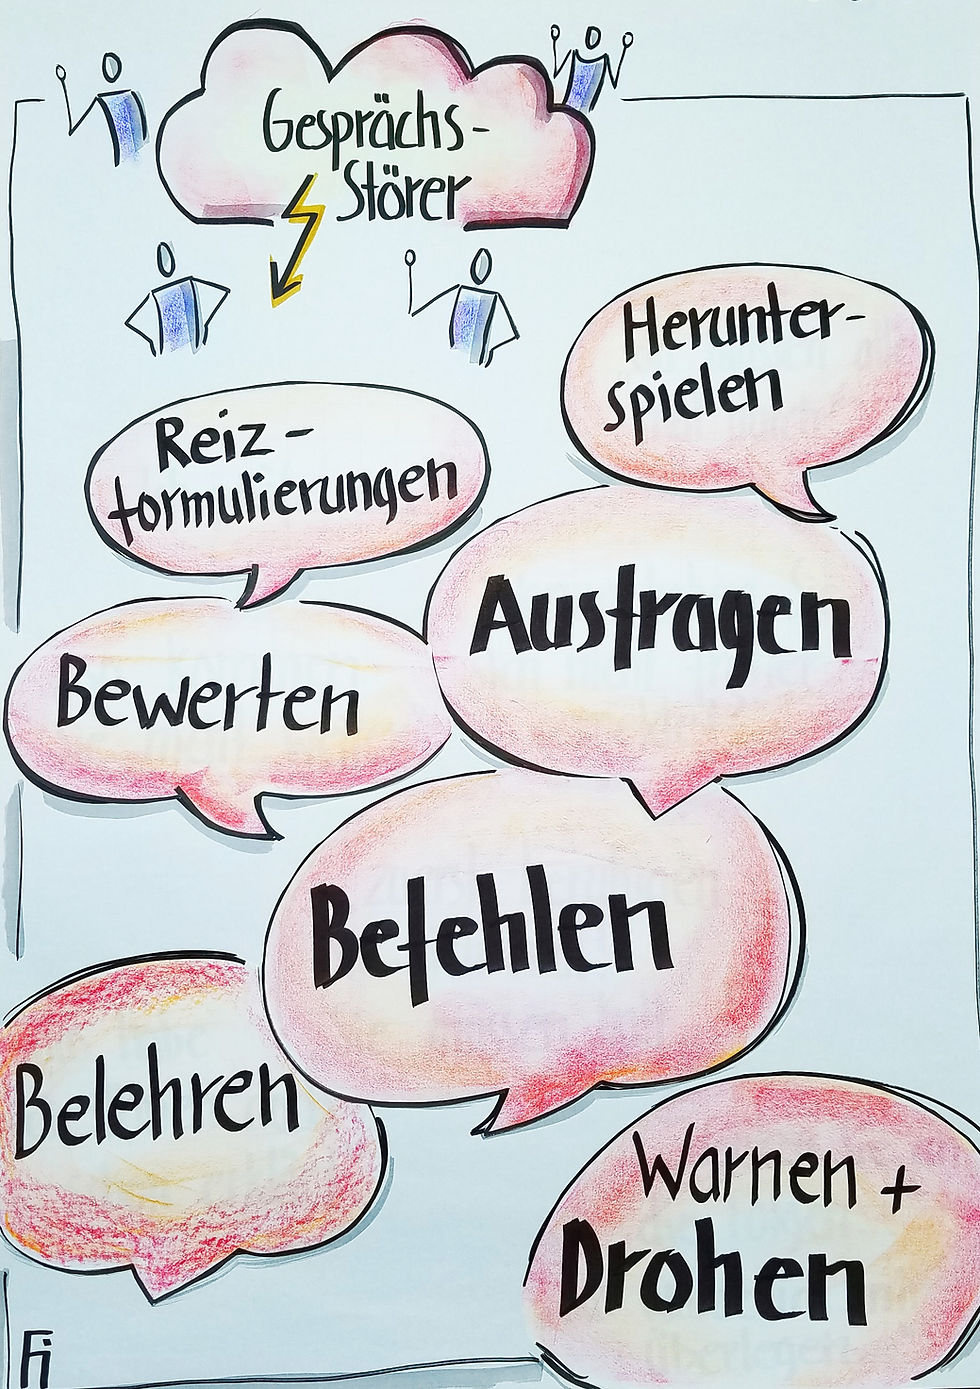 Gesprächs-
Störer
Herunter-
spielen
Reiz-
formulierungen
Ausfragen
Bewerten
Befehlen
Belehren
Warnen +
Drohen
Fi